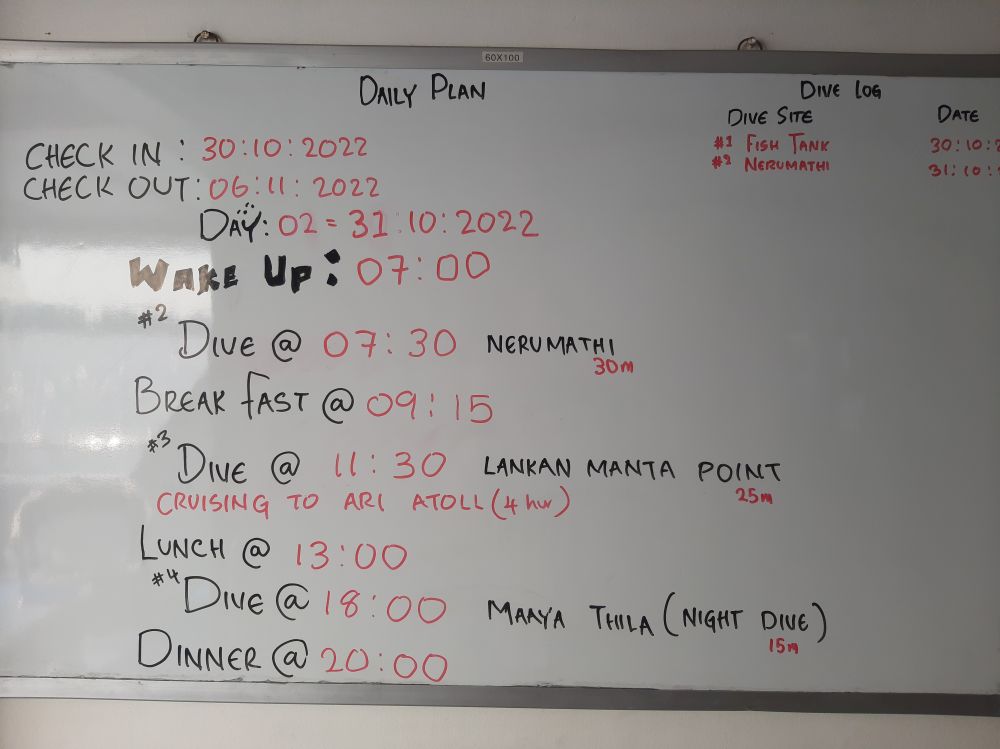 60X100
DAILY PLAN
CHECK IN : 30:10:2022
CHECK OUT: 06:11: 2022
DAY: 02 = 31:10:2022
WAKE UP: 07:00
#2 DIVE @ 07:30 NERUMATHI
30m
BREAK FAST @ 09:15
#3 DIVE @ 11:30 LANKAN MANTA POINT
25m
CRUISING TO ARI ATOLL (4 hur)
LUNCH @ 13:00
#4 DIVE @ 18:00 MAAYA THILA (NIGHT DIVE)
15m
DINNER @ 20:00
DIVE LOG
DIVE SITE DATE
#1 FISH TANK 30:10:2
#2 NERUMATHI 31:10: